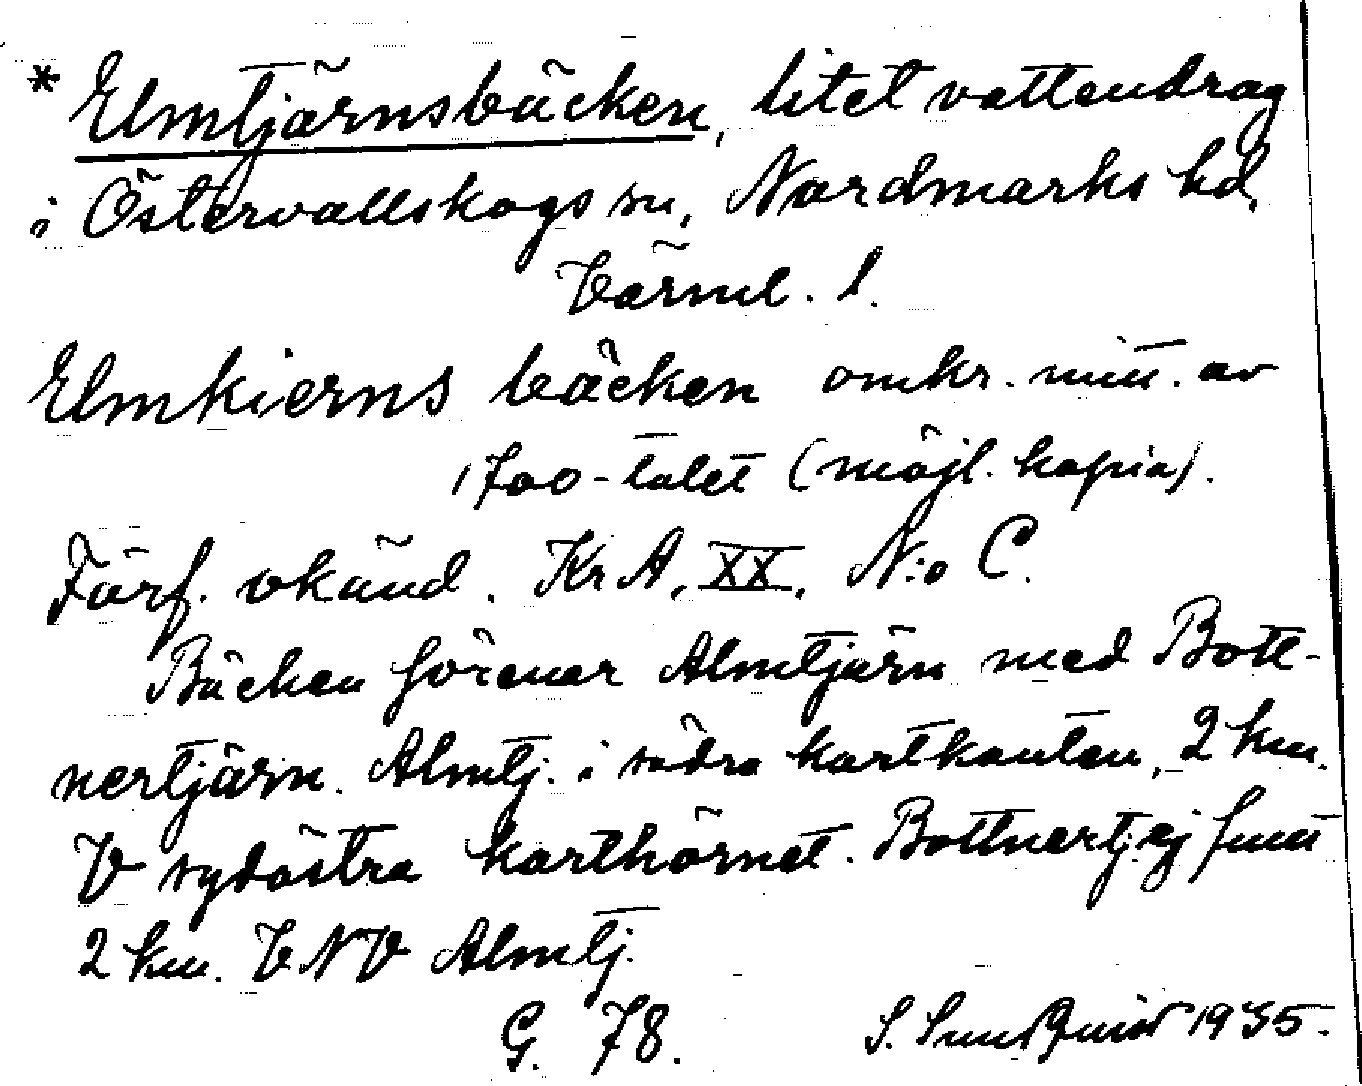 * Elmtjärnsbäcken, litet vattendrag
i Östervallskogs sn, Nordmarks hd,
Värml. l.
Elmkierns bäcken omkr. mitt. av
1700-talet (möjl. kopia).
Förf. okänd. KrA, XX, N:o C.
Bäcken förenar Almtjärn med Bott-
nertjärn. Almtj. i södra kartkanten, 2 km.
V sydöstra karthörnet. Bottnertj. ej fullt
2 km. VNV Almtj.
G. 78. S. Sundquist 1935.